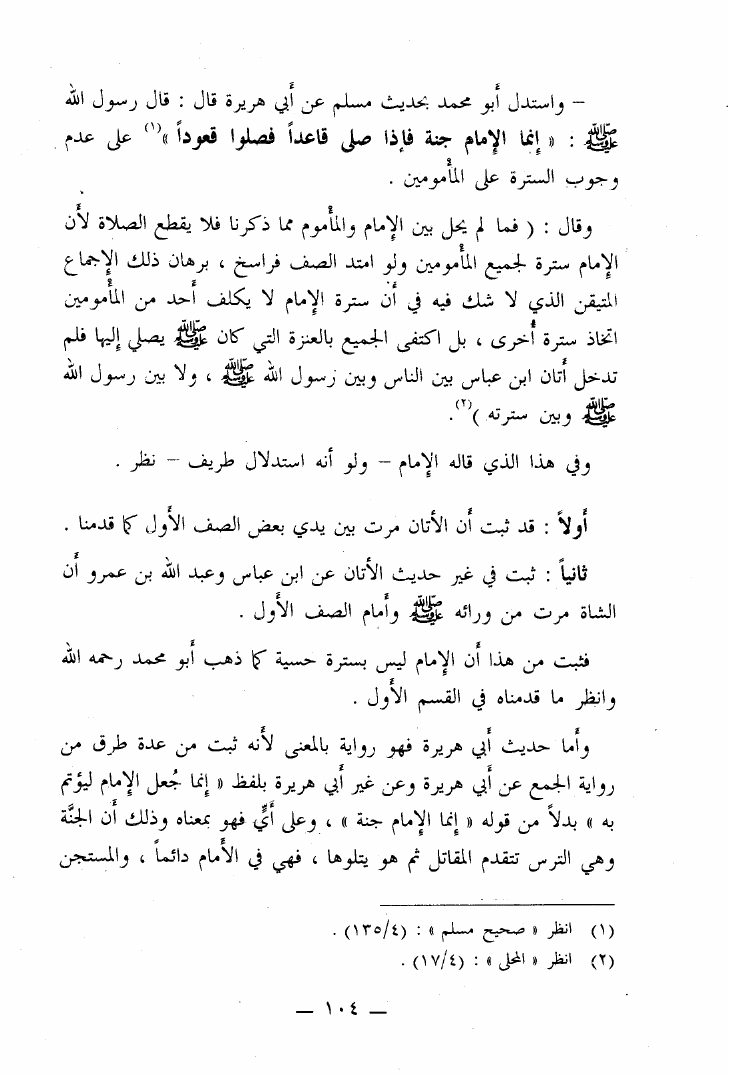 – واستدل أبو محمد بحديث مسلم عن أبي هريرة قال : قال رسول الله
ﷺ : « إنما الإمام جنة فإذا صلى قاعداً فصلوا قعوداً »(١) على عدم
وجوب السترة على المأمومين .
وقال : ( فما لم يحل بين الإمام والمأموم مما ذكرنا فلا يقطع الصلاة لأن
الإمام سترة لجميع المأمومين ولو امتد الصف فراسخ ، برهان ذلك الإجماع
المتيقن الذي لا شك فيه في أن سترة الإمام لا يكلف أحد من المأمومين
اتخاذ سترة أخرى ، بل اكتفى الجميع بالعنزة التي كان ﷺ يصلي إليها فلم
تدخل أتان ابن عباس بين الناس وبين رسول الله ﷺ ، ولا بين رسول الله
ﷺ وبين سترته )(٢).
وفي هذا الذي قاله الإمام – ولو أنه استدلال طريف – نظر .
أولاً : قد ثبت أن الأتان مرت بين يدي بعض الصف الأول كما قدمنا .
ثانياً : ثبت في غير حديث الأتان عن ابن عباس وعبد الله بن عمرو أن
الشاة مرت من ورائه ﷺ وأمام الصف الأول .
فثبت من هذا أن الإمام ليس بسترة حسية كما ذهب أبو محمد رحمه الله
وانظر ما قدمناه في القسم الأول .
وأما حديث أبي هريرة فهو رواية بالمعنى لأنه ثبت من عدة طرق من
رواية الجمع عن أبي هريرة وعن غير أبي هريرة بلفظ « إنما جُعل الإمام ليؤتم
به » بدلاً من قوله « إنما الإمام جنة » ، وعلى أيٍّ فهو بمعناه وذلك أن الجنَّة
وهي الترس تتقدم المقاتل ثم هو يتلوها ، فهي في الأمام دائماً ، والمستجن
(١) انظر « صحيح مسلم » : (١٣٥/٤) .
(٢) انظر « المحلى » : (١٧/٤) .
— ١٠٤ —